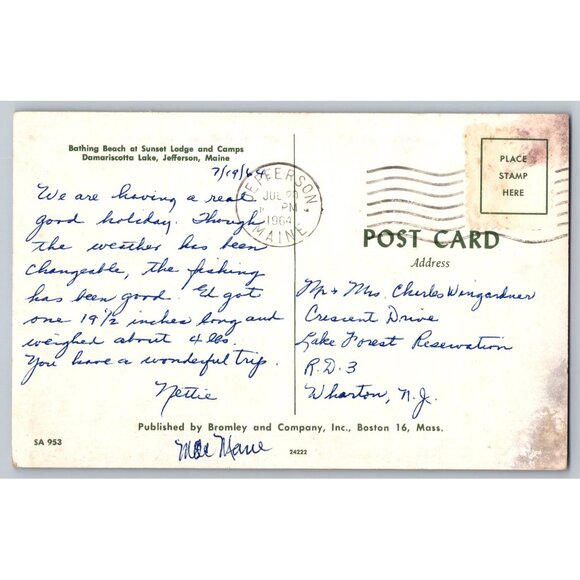 Bathing Beach at Sunset Lodge and Camps
Damariscotta Lake, Jefferson, Maine
7/19/64
We are having a real
good holiday. Though
the weather has been
changeable, the fishing
has been good. Ed got
one 19 1/2 inches long and
weighed about 4 lbs.
You have a wonderful trip.
Nettie
JEFFERSON
JUL 20
PM
1964
MAINE
PLACE
STAMP
HERE
POST CARD
Address
Mr & Mrs. Charles Wengardner
Crescent Drive
Lake Forest Reservation
R.D. 3
Wharton, N.J.
Published by Bromley and Company, Inc., Boston 16, Mass.
SA 953
24222